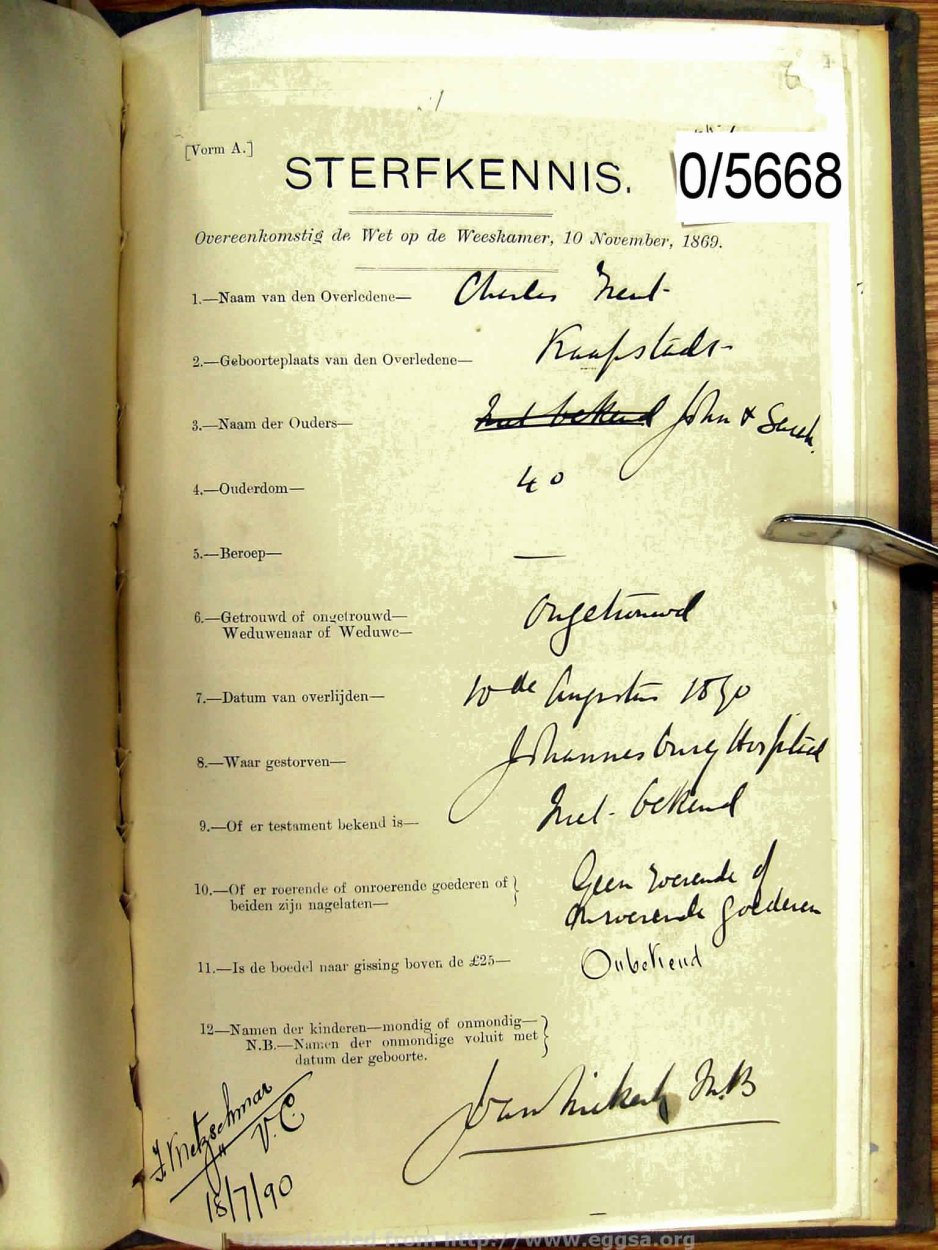 [Vorm A.]
STERFKENNIS.
0/5668
Overeenkomstig de Wet op de Weeskamer, 10 November, 1869.
1.—Naam van den Overledene— Charles
2.—Geboorteplaats van den Overledene— Kaapstadt
3.—Naam der Ouders— Niet bekend John & Sarah
4.—Ouderdom— 40
5.—Beroep— —
6.—Getrouwd of ongetrouwd— Ongetrouwd
Weduwenaar of Weduwe—
7.—Datum van overlijden— 10de Augustus 1890
8.—Waar gestorven— Johannesburg Hospital
9.—Of er testament bekend is— Niet bekend
10.—Of er roerende of onroerende goederen of } Geen roerende of
beiden zijn nagelaten— onroerende goederen
11.—Is de boedel naar gissing boven de £25— Onbekend
12—Namen der kinderen—mondig of onmondig— }
N.B.—Namen der onmondige voluit met
datum der geboorte.
van Niekerk
V.C
18/7/90
http://www.eggsa.org